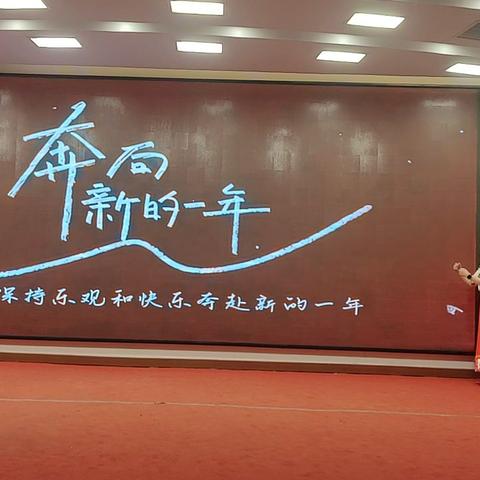 奔向
新的一年
保持乐观和快乐奔赴新的一年